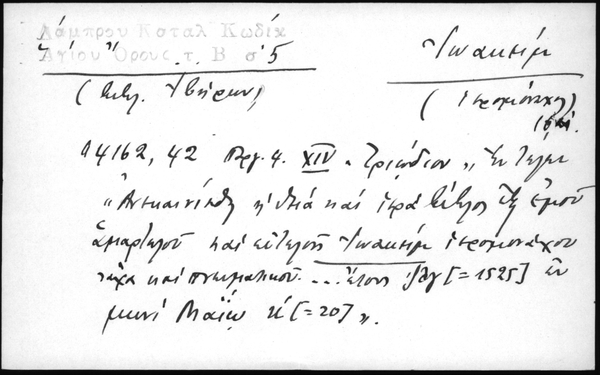 Λάμπρου Καταλ Κώδικ
Ἁγίου Ὄρους τ. Β σ 5
Ἰωακείμ
(Βιβλ. Ἰβήρων)
(ἱερομόναχος)
4162, 42 Περγ. 4. XIV « Τριῴδιον » Ἐν τέλει
« Ἀνεκαινίσθη ἡ θεία καὶ ἱερὰ βίβλος ἐξ ἐμοῦ
ἁμαρτωλοῦ καὶ εὐτελοῦς Ἰωακείμ ἱερομονάχου
τάχα καὶ πνευματικοῦ ... ἔτους ζλγ [= 1525] ἐν
μηνὶ Μαΐῳ κ [= 20] ».